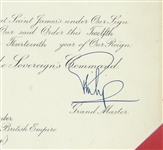 at Saint James's under Our Sign
Our said Order this Twelfth
Fourteenth year of Our Reign
Sovereign's Command
Philip
Grand Master
British Empire